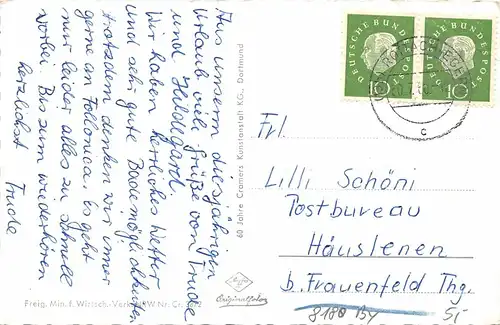 Aus unserm diesjährigen
Urlaub viele Grüße von Trude
und Hildegard.
Wir haben herrliches Wetter
und sehr gute Bademöglichkeiten
trotzdem denken wir immer
gerne an Follonica. Es geht
nur leider alles zu schnell
vorbei. Bis zum wiederhören
herzlichst
Trude
60 Jahre Cramers Kunstanstalt KG., Dortmund
Freig. Min. f. Wirtsch.-Verk. NRW Nr. Cr.
Originalfoto
DEUTSCHE BUNDESPOST
10
DEUTSCHE BUNDESPOST
10
c
Frl.
Lilli Schöni
Postbureau
Häuslenen
b. Frauenfeld Thg.
8180 By
5,-